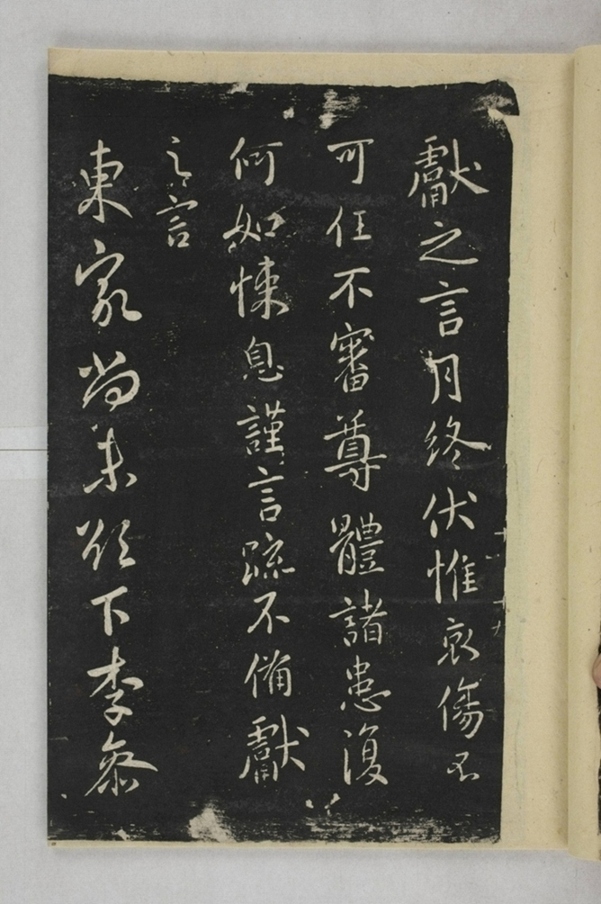 獻之言月終伏惟哀傷不
可任不審尊體諸患復
何如悚息謹言疏不備獻
之言
東家尚未欲下李參